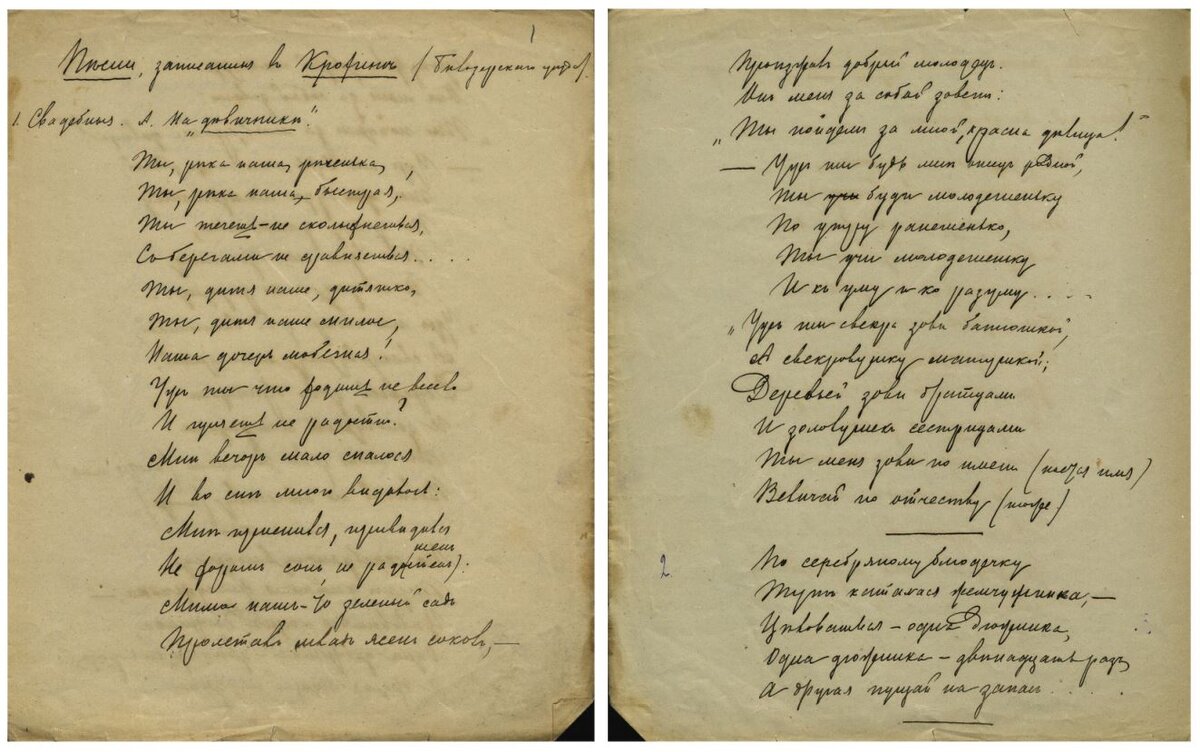 1
Пѣсни, записанныя въ Крохинѣ (Бѣлозерскаго уѣзда).
1. Свадебныя. А. На „дѣвичники“.
Ты, рѣка наша, рѣченька,
Ты, рѣка наша, быстрая,
Ты течешь – не сколыхнешься,
Съ берегами не сравняешься....
Ты, дитя наше, дитятко,
Ты, дитя наше милое,
Наша дочерь любезная!
Ужъ ты что ходишь не весело
И гуляешь не радостно?
Мнѣ вечоръ мало спалося
И во снѣ много видѣлося:
Мнѣ приснился, привидѣлся
Не хорошъ сонъ, не радо(стенъ).
Мимо нашъ-то зеленый садъ
Пролеталъ младъ ясенъ соколъ, —
добрый молодецъ.
Онъ меня за собой зоветъ:
„Ты пойдемъ за мной, красна дѣвица!“
— Ужъ ты будь мнѣ отецъ родной,
Ты буди молодешеньку
По утру ранешенько,
Ты учи молодешеньку
И къ уму и ко разуму....
„Ужъ ты свекра зови батюшкой,
А свекровушку матушкой;
Деверьей зови братцами
И золовушекъ сестрицами
Ты меня зови по имени
Величай по отчеству (тоже)
2
По серебряному блюдечку
Тутъ каталася жемчужинка, —
Цѣловаться – одна дюжинка,
Одна дюжинка – двѣнадцать разъ,
А другая пущай на запасъ....